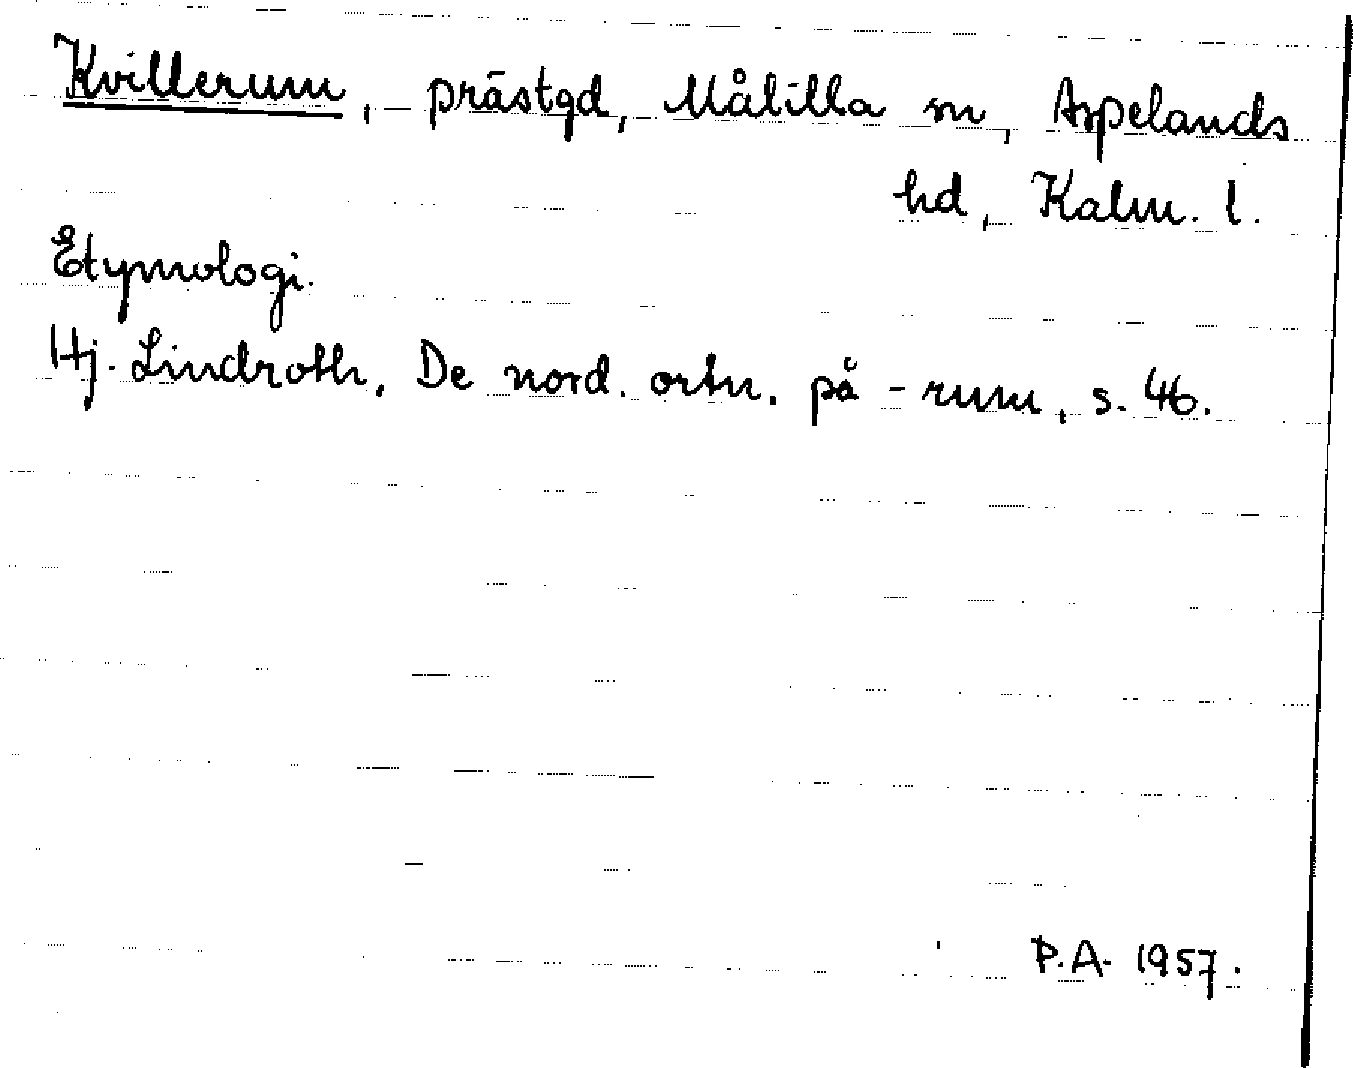 Kvillerum, prästgd, Målilla sn, Aspelands
hd, Kalm. l.
Etymologi.
Hj. Lindroth, De nord. ortn. på -rum, s. 46.
P.A. 1957.